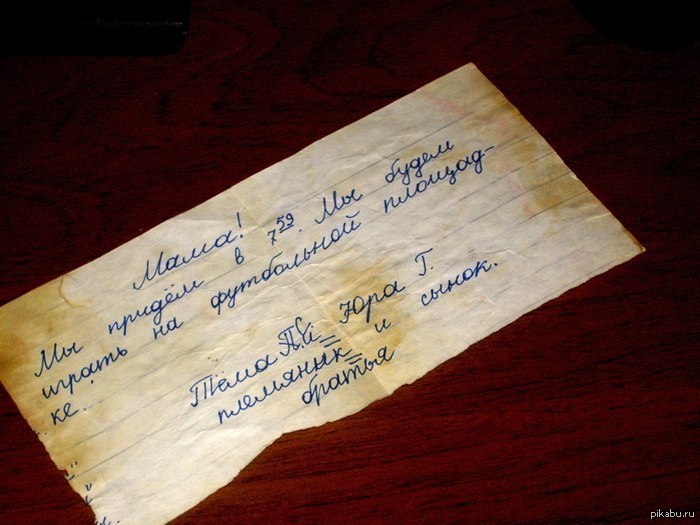 Мама!
Мы придём в 7 59. Мы будем
играть на футбольной площад-
ке.
Тёма П. и Юра Г.
племянник и сынок.
братья
pikabu.ru